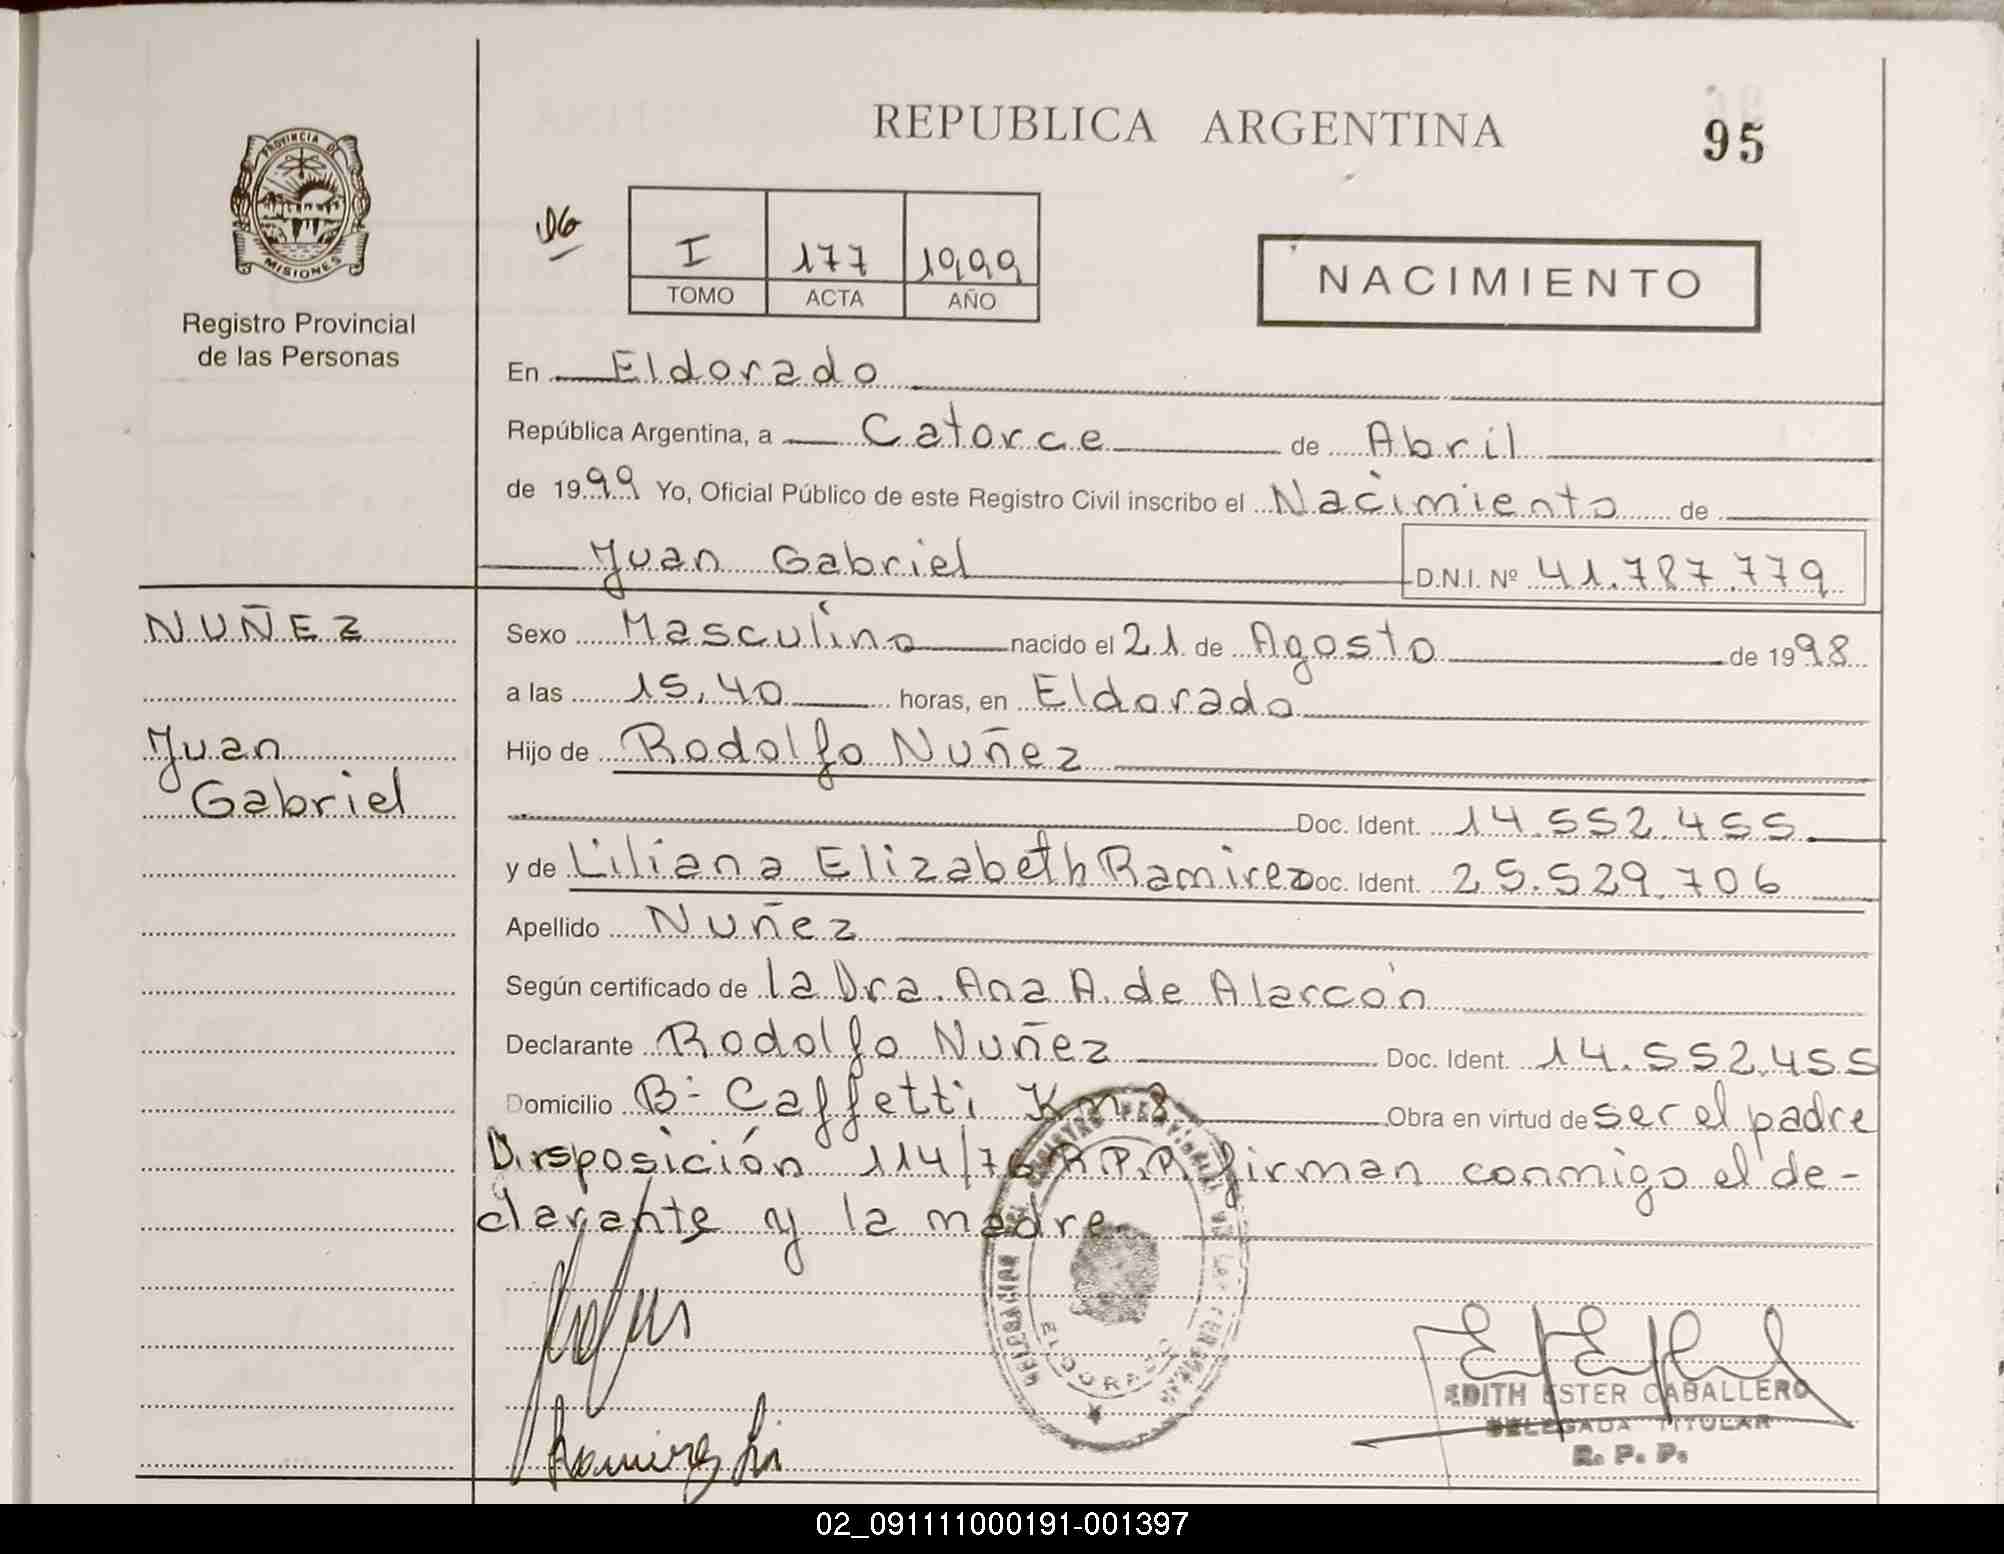 REPUBLICA ARGENTINA
95
PROVINCIA DE
MISIONES
Registro Provincial
de las Personas
I 177 1999
TOMO ACTA AÑO
NACIMIENTO
En Eldorado
República Argentina, a Catorce de Abril
de 1999 Yo, Oficial Público de este Registro Civil inscribo el Nacimiento de
Juan Gabriel D.N.I. Nº 41.787.779
NUÑEZ
Juan
Gabriel
Sexo Masculino nacido el 21 de Agosto de 1998
a las 15,40 horas, en Eldorado
Hijo de Rodolfo Nuñez
Doc. Ident. 14.552.455
y de Liliana Elizabeth Ramirez Doc. Ident. 25.529.706
Apellido Nuñez
Según certificado de la Dra. Ana A. de Alarcón
Declarante Rodolfo Nuñez Doc. Ident. 14.552.455
Domicilio Bº Caffetti Km 8 Obra en virtud de ser el padre
Disposición 114/76 R.P.P. firman conmigo el de-
clarante y la madre.
ELDORADO
Ramirez Li
EDITH ESTER CABALLERO
DELEGADA TITULAR
R. P. P.
02_091111000191-001397